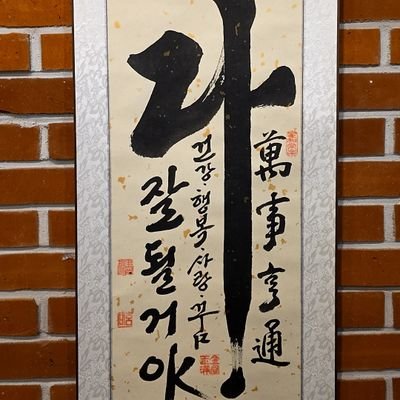 萬事亨通
다
건강·행복·사랑·꿈
잘될거야